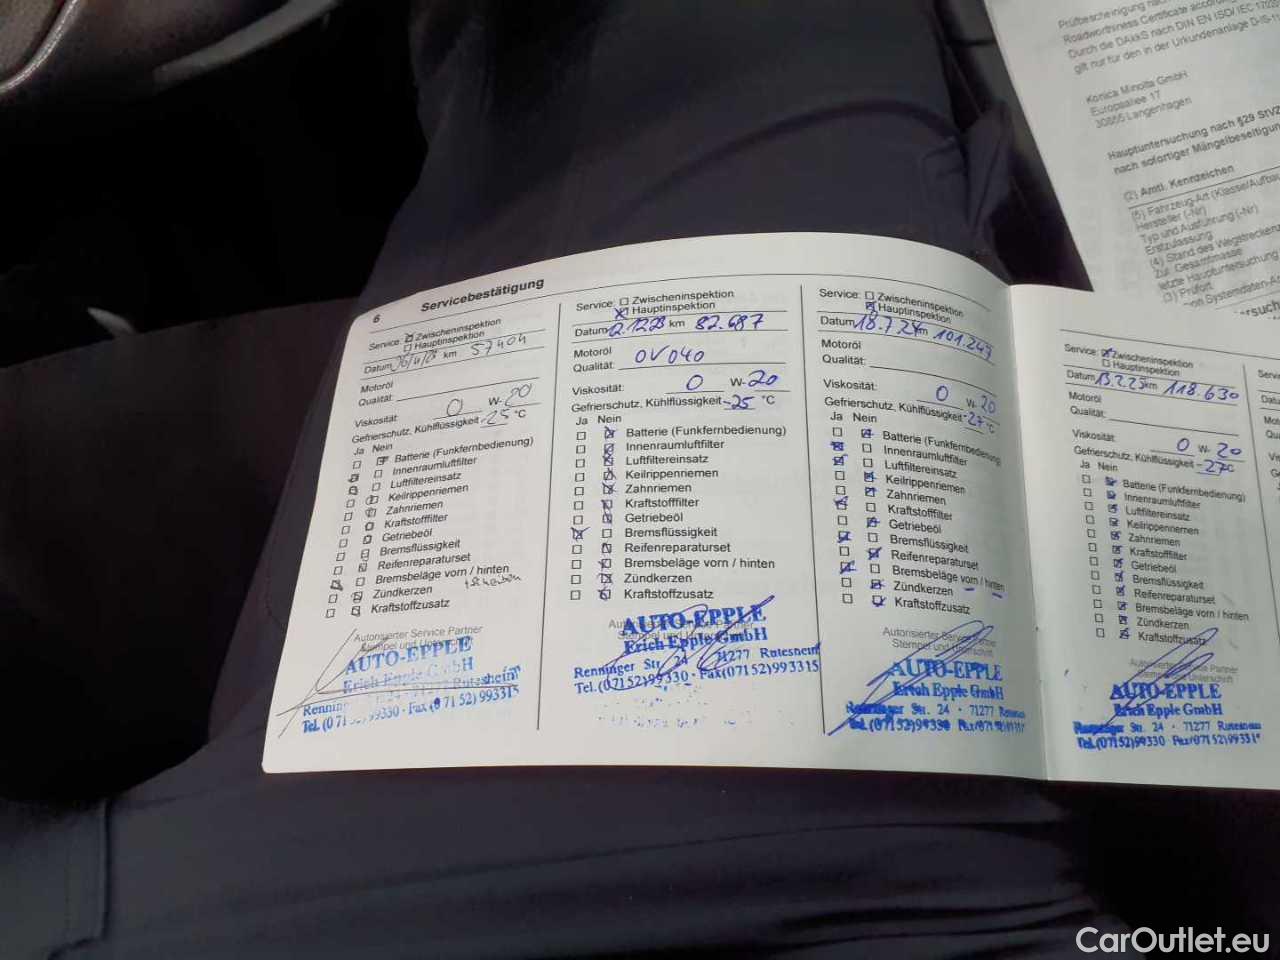 6 Servicebestätigung
Service: Zwischeninspektion
Hauptinspektion
Datum km 57404
Motoröl
Qualität:
Viskosität: 0 W- 20
Gefrierschutz, Kühlflüssigkeit -25 °C
Ja Nein
Batterie (Funkfernbedienung)
Innenraumluftfilter
Luftfiltereinsatz
Keilrippenriemen
Zahnriemen
Kraftstofffilter
Getriebeöl
Bremsflüssigkeit
Reifenreparaturset
Bremsbeläge vorn / hinten
Zündkerzen
Kraftstoffzusatz
Autorisierter Service Partner
Stempel und Unterschrift
AUTO-EPPLE
Erich Epple GmbH
Tel. Fax (0 71 52) 993315
Service: Zwischeninspektion
Hauptinspektion
Datum km 82.687
Motoröl
Qualität: 0V040
Viskosität: 0 W- 20
Gefrierschutz, Kühlflüssigkeit -25 °C
Ja Nein
Batterie (Funkfernbedienung)
Innenraumluftfilter
Luftfiltereinsatz
Keilrippenriemen
Zahnriemen
Kraftstofffilter
Getriebeöl
Bremsflüssigkeit
Reifenreparaturset
Bremsbeläge vorn / hinten
Zündkerzen
Kraftstoffzusatz
AUTO-EPPLE
Erich Epple GmbH
Renninger Str. 24 71277 Rutesheim
Tel. (07152)99330 · Fax(07152)993315
Service: Zwischeninspektion
Hauptinspektion
Datum 18.7.24 km 101.247
Motoröl
Qualität:
Viskosität: 0 W- 20
Gefrierschutz, Kühlflüssigkeit -27 °C
Ja Nein
Batterie (Funkfernbedienung)
Innenraumluftfilter
Luftfiltereinsatz
Keilrippenriemen
Zahnriemen
Kraftstofffilter
Getriebeöl
Bremsflüssigkeit
Reifenreparaturset
Bremsbeläge vorn / hinten
Zündkerzen
Kraftstoffzusatz
Autorisierter Service Partner
Stempel und Unterschrift
AUTO-EPPLE
Erich Epple GmbH
Str. 24 · 71277
Tel. (07152)99330
Service: Zwischeninspektion
Hauptinspektion
Datum 13.2.25 km 118.630
Motoröl
Qualität:
Viskosität: 0 W- 20
Gefrierschutz, Kühlflüssigkeit -27°C
Ja Nein
Batterie (Funkfernbedienung)
Innenraumluftfilter
Luftfiltereinsatz
Keilrippenriemen
Zahnriemen
Kraftstofffilter
Getriebeöl
Bremsflüssigkeit
Reifenreparaturset
Bremsbeläge vorn / hinten
Zündkerzen
Kraftstoffzusatz
Autorisierter Service Partner
Stempel und Unterschrift
AUTO-EPPLE
Erich Epple GmbH
Str. 24 · 71277 Rutesheim
Tel.(07152)99330
Prüfbescheinigung nach
Roadworthiness Certificate
Durch die DAkkS nach DIN EN ISO/ IEC 17020
gilt nur für den in der Urkundenanlage
Konica Minolta GmbH
Europaallee 17
30855 Langenhagen
Hauptuntersuchung nach §29
nach sofortiger Mängelbeseitigun
(2) Amtl. Kennzeichen
(5) Fahrzeug-Art (Klasse/Aufbau
Hersteller (-Nr)
Typ und Ausführung (-Nr)
Erstzulassung
(4) Stand des Wegstrecken
Zul. Gesamtmasse
letzte Hauptuntersuchung
(3) Prüfort
CarOutlet.eu